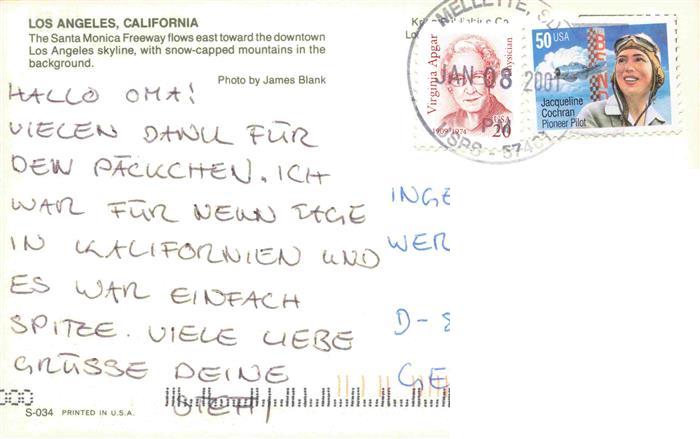 LOS ANGELES, CALIFORNIA
The Santa Monica Freeway flows east toward the downtown
Los Angeles skyline, with snow-capped mountains in the
background.
Photo by James Blank
HALLO OMA!
VIELEN DANK FÜR
DEN PÄCKCHEN. ICH
WAR FÜR NEUN TAGE
IN KALIFORNIEN UND
ES WAR EINFACH
SPITZE. VIELE LIEBE
GRÜSSE DEINE
S-034 PRINTED IN U.S.A.
MELLETTE,
JAN 08 2001
USPS - 57461
Virginia Apgar
Physician
1909-1974
USA
20
50 USA
Jacqueline
Cochran
Pioneer Pilot
INGE
WER
D-
GE